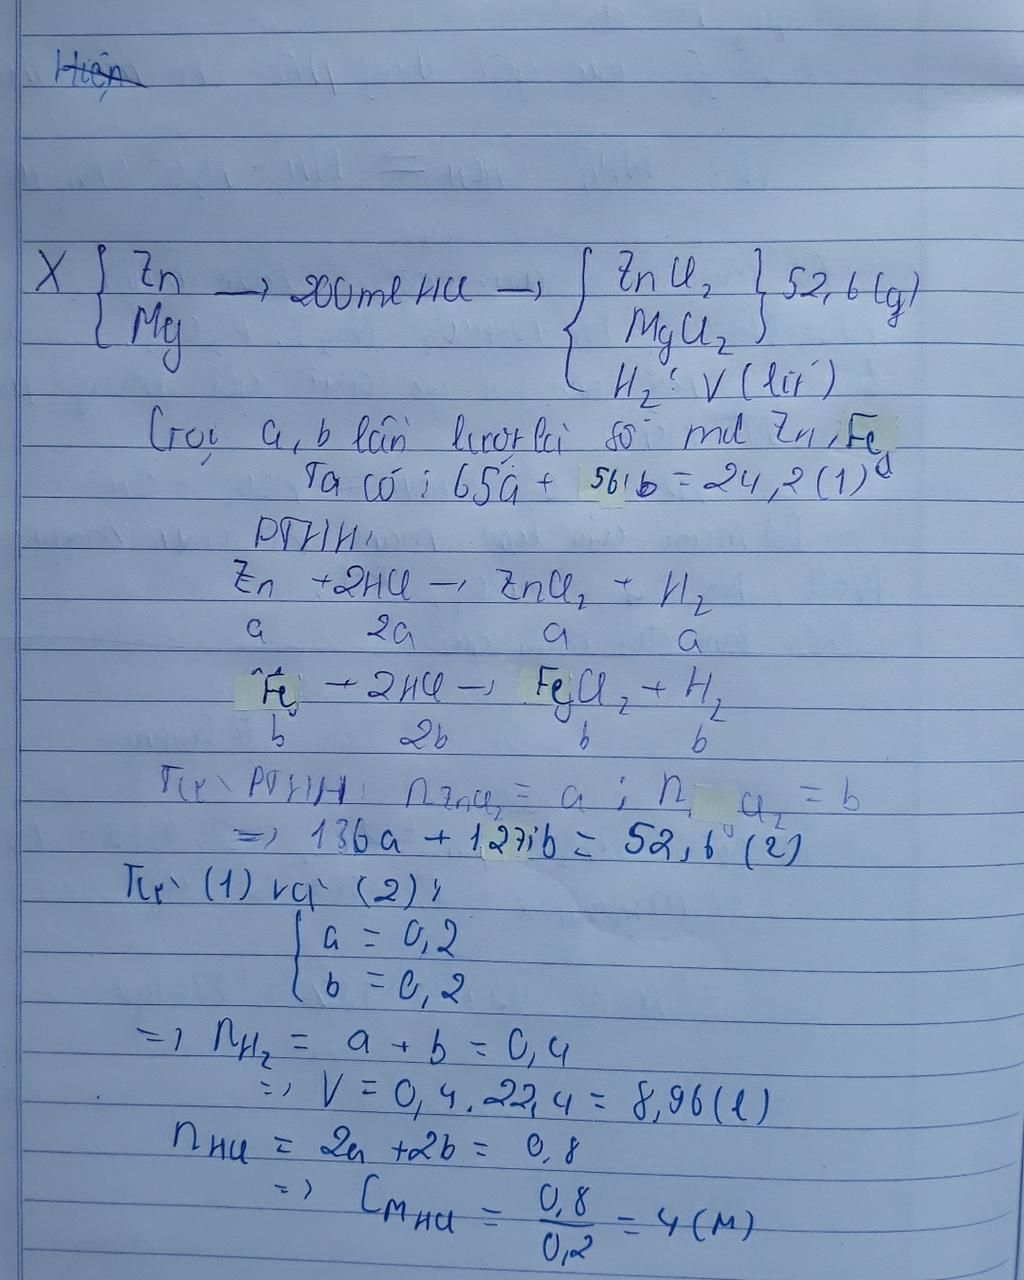 Hiện
X { Zn Mg → 200ml HCl → { ZnCl₂ MgCl₂ } 52,6 (g)
H₂ : V (lít)
Gọi a, b lần lượt là số mol Zn, Fe
Ta có : 65a + 56b = 24,2 (1)
PTHH:
Zn + 2HCl → ZnCl₂ + H₂
a 2a a a
Fe + 2HCl → FeCl₂ + H₂
b 2b b b
Từ PTHH: nZnCl₂ = a ; n Cl₂ = b
=> 136a + 127b = 52,6 (2)
Từ (1) và (2) :
{ a = 0,2
b = 0,2
=> nH₂ = a + b = 0,4
=> V = 0,4.22,4 = 8,96 (l)
nHCl = 2a + 2b = 0,8
=> CM HCl = 0,8/0,2 = 4 (M)